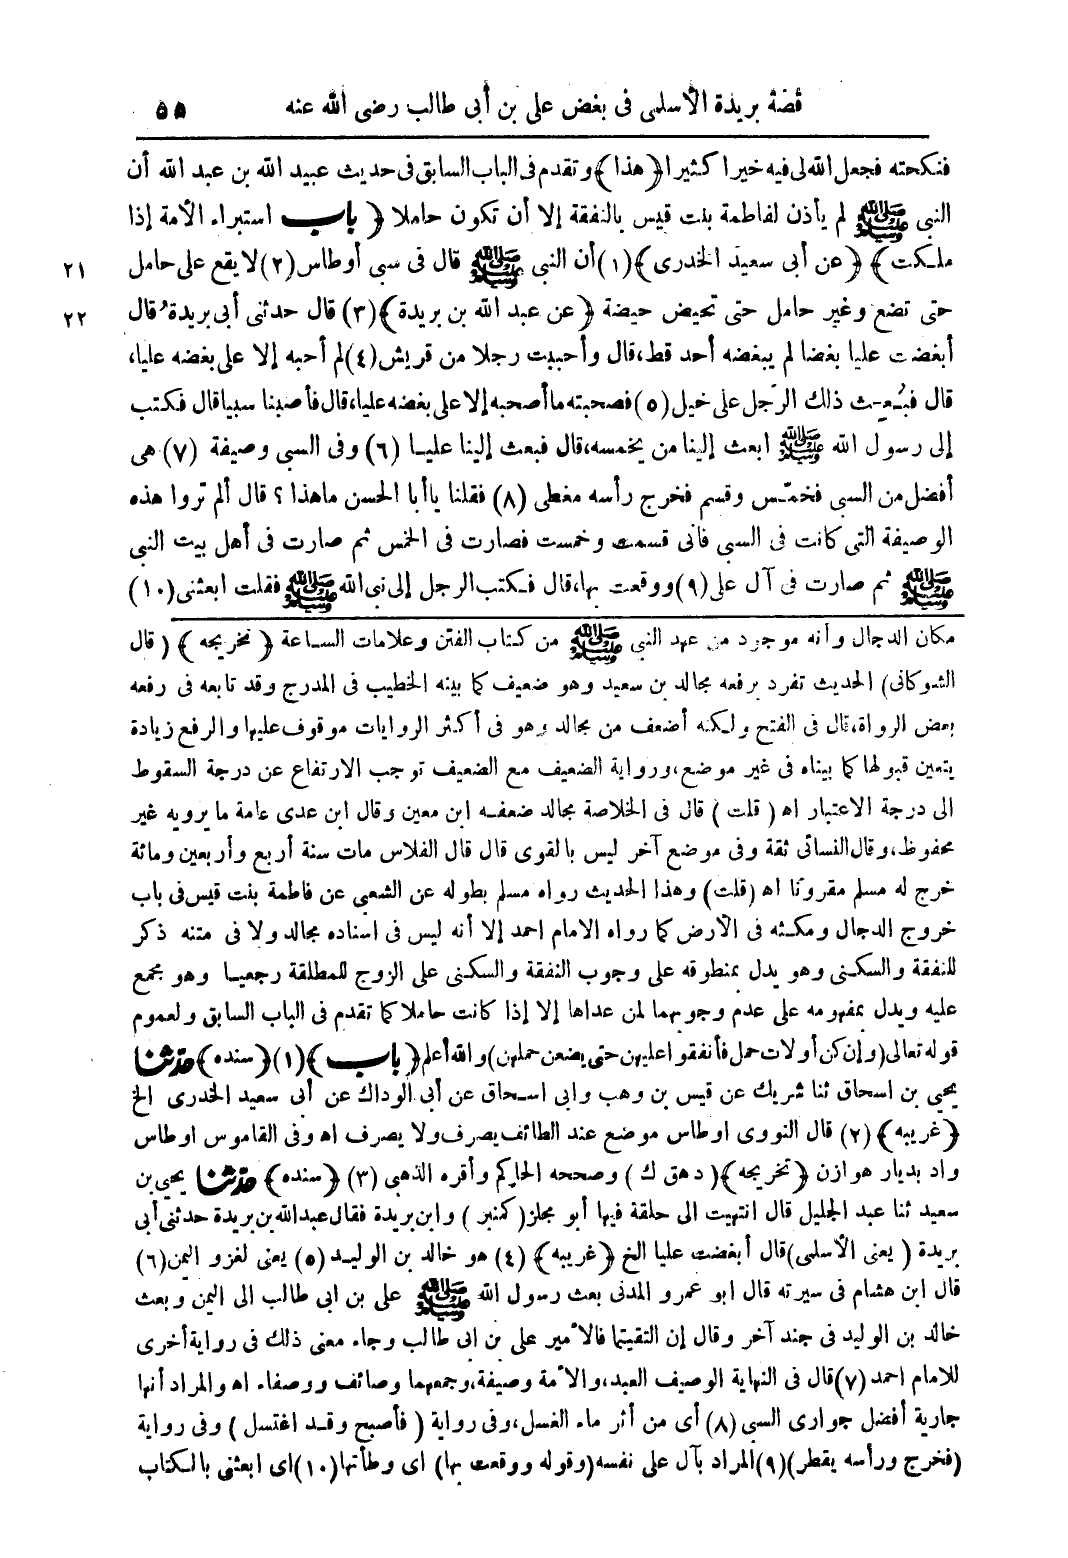 قصة بريدة الأسلمى فى بغض على بن أبى طالب رضى الله عنه ٥٥
فنكحته فجعل الله لى فيه خيرا كثيرا (هذا) وتقدم فى الباب السابق فى حديث عبيد الله بن عبد الله أن
النبى ﷺ لم يأذن لفاطمة بنت قيس بالنفقة إلا أن تكون حاملا ﴿ باب استبراء الأمة إذا
ملكت ﴾ ﴿ عن أبى سعيد الخدرى ﴾ (١) أن النبى ﷺ قال فى سبى أوطاس (٢) لا يقع على حامل ٢١
حتى تضع وغير حامل حتى تحيض حيضة ﴿ عن عبد الله بن بريدة ﴾ (٣) قال حدثنى أبى بريدة قال ٢٢
أبغضت عليا بغضا لم يبغضه أحد قط، قال وأحببت رجلا من قريش (٤) لم أحبه إلا على بغضه عليا،
قال فبُعِث ذلك الرجل على خيل (٥) فصحبته ما أصحبه إلا على بغضه عليا، قال فأصبنا سبيا قال فكتب
إلى رسول الله ﷺ ابعث إلينا من يخمسه، قال فبعث إلينا عليا (٦) وفى السبى وصيفة (٧) هى
أفضل من السبى فخمّس وقسم فخرج رأسه مغطى (٨) فقلنا يا أبا الحسن ما هذا ؟ قال ألم تروا هذه
الوصيفة التى كانت فى السبى فانى قسمت وخمست فصارت فى الخمس ثم صارت فى أهل بيت النبى
ﷺ ثم صارت فى آل على (٩) ووقعت بها، قال فكتب الرجل إلى نبى الله ﷺ فقلت ابعثنى (١٠)
مكان الدجال وأنه موجود من عهد النبى ﷺ من كتاب الفتن وعلامات الساعة ﴿ تخريجه ﴾ (قال
الشوكانى) الحديث تفرد برفعه مجالد بن سعيد وهو ضعيف كما بينه الخطيب فى المدرج وقد تابعه فى رفعه
بعض الرواة، قال فى الفتح ولكنه أضعف من مجالد وهو فى أكثر الروايات موقوف عليها والرفع زيادة
يتعين قبولها كما بيناه فى غير موضع، ورواية الضعيف مع الضعيف توجب الارتفاع عن درجة السقوط
الى درجة الاعتبار اه (قلت) قال فى الخلاصة مجالد ضعفه ابن معين وقال ابن عدى عامة ما يرويه غير
محفوظ، وقال النسائى ثقة وفى موضع آخر ليس بالقوى قال قال الفلاس مات سنة أربع وأربعين ومائة
خرج له مسلم مقرونا اه (قلت) وهذا الحديث رواه مسلم بطوله عن الشعبى عن فاطمة بنت قيس فى باب
خروج الدجال ومكثه فى الأرض كما رواه الامام احمد إلا أنه ليس فى اسناده مجالد ولا فى متنه ذكر
للنفقة والسكنى وهو يدل بمنطوقه على وجوب النفقة والسكنى على الزوج للمطلقة رجعيا وهو مجمع
عليه ويدل بمفهومه على عدم وجوبهما لمن عداها إلا إذا كانت حاملا كما تقدم فى الباب السابق ولعموم
قوله تعالى (وإن كن أولات حمل فأنفقوا عليهن حتى يضعن حملهن) والله أعلم ﴿ باب ﴾ (١) ﴿ سنده ﴾ حدثنا
يحيى بن اسحاق ثنا شريك عن قيس بن وهب وابى اسحاق عن أبى الوداك عن أبى سعيد الخدرى الخ
﴿ غريبه ﴾ (٢) قال النووى اوطاس موضع عند الطائف يصرف ولا يصرف اه وفى القاموس اوطاس
واد بديار هوازن ﴿ تخريجه ﴾ (د هق ك) وصححه الحاكم وأقره الذهبى (٣) ﴿ سنده ﴾ حدثنا يحيى بن
سعيد ثنا عبد الجليل قال انتهيت الى حلقة فيها أبو مجلز (كمنبر) وابن بريدة فقال عبد الله بن بريدة حدثنى أبى
بريدة (يعنى الأسلمى) قال أبغضت عليا الخ ﴿ غريبه ﴾ (٤) هو خالد بن الوليد (٥) يعنى لغزو اليمن (٦)
قال ابن هشام فى سيرته قال ابو عمرو المدنى بعث رسول الله ﷺ على بن ابى طالب الى اليمن وبعث
خالد بن الوليد فى جند آخر وقال إن التقيتما فالأمير على بن ابى طالب وجاء معنى ذلك فى رواية أخرى
للامام احمد (٧) قال فى النهاية الوصيف العبد، والأمة وصيفة، وجمعهما وصائف ووصفاء اه والمراد أنها
جارية أفضل جوارى السبى (٨) أى من أثر ماء الغسل، وفى رواية (فأصبح وقد اغتسل) وفى رواية
(فخرج ورأسه يقطر) (٩) المراد بآل على نفسه (وقوله ووقعت بها) اى وطأتها (١٠) اى ابعثنى بالكتاب